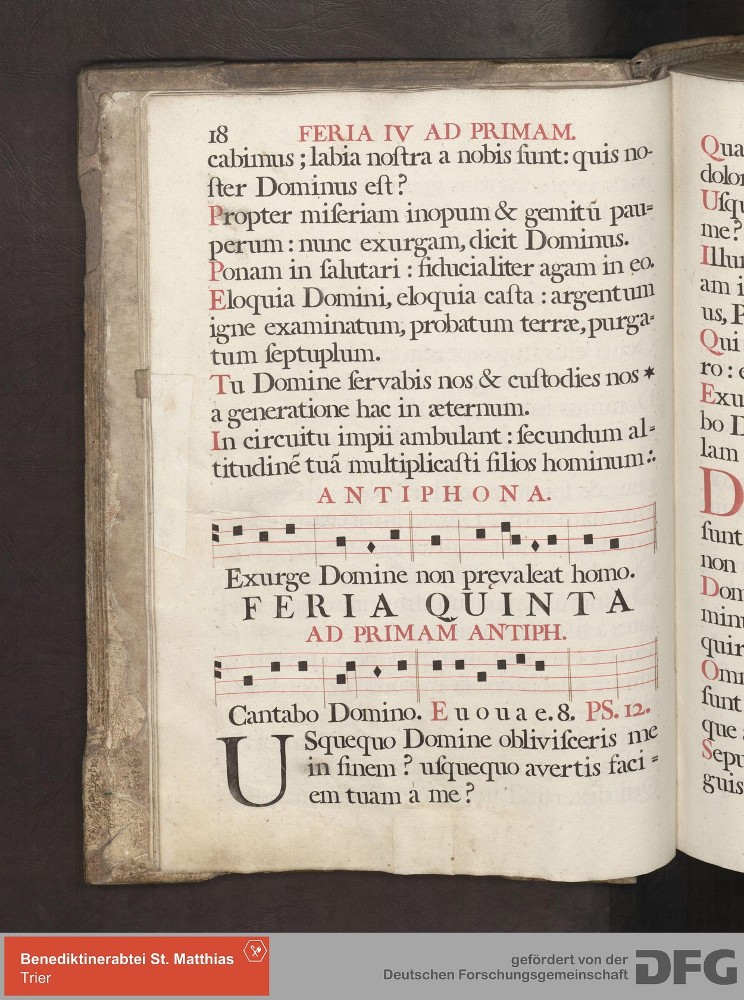 18 FERIA IV AD PRIMAM.
cabimus ; labia noſtra a nobis ſunt : quis no-
ſter Dominus eſt ?
Propter miſeriam inopum & gemitū pau=
perum : nunc exurgam, dicit Dominus.
Ponam in ſalutari : fiducialiter agam in eo.
Eloquia Domini, eloquia caſta : argentum
igne examinatum, probatum terræ, purga=
tum ſeptuplum.
Tu Domine ſervabis nos & cuſtodies nos *
a generatione hac in æternum.
In circuitu impii ambulant : ſecundum al=
titudinē tuā multiplicaſti filios hominum :.
ANTIPHONA.
Exurge Domine non pręvaleat homo.
FERIA QUINTA
AD PRIMAM ANTIPH.
Cantabo Domino. Euouae. 8. PS. 12.
USquequo Domine obliviſceris me
in finem ? uſquequo avertis faci=
em tuam a me ?
Qua
dolor
Uſqu
me ?
Illu
am i
us, P
Qui
ro : e
Exu
bo D
lam
D
ſunt
non
Dom
min
quir
Omn
ſunt
que
Sepu
guis
Benediktinerabtei St. Matthias
Trier
gefördert von der
Deutschen Forschungsgemeinschaft
DFG